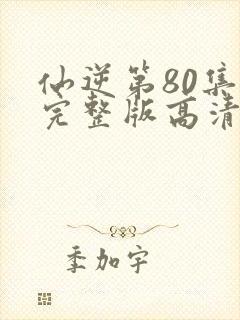 仙逆第80集
完整版高清
季加宇